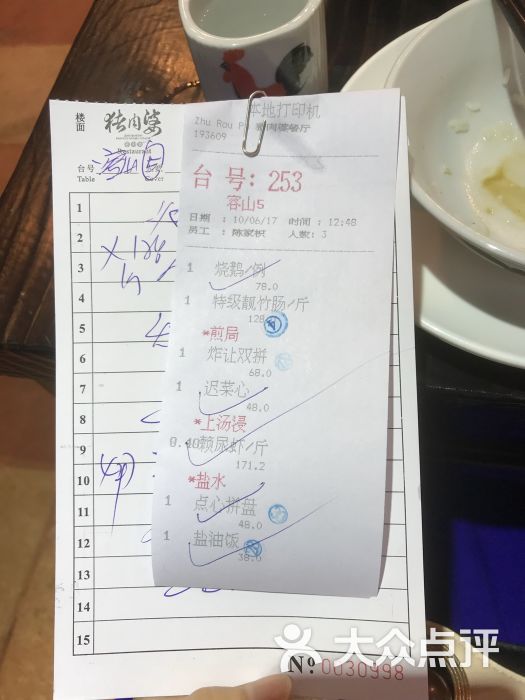 楼面
猪肉婆
Restaurant
台号
Table
1
2
3
4
5
6
7
8
9
10
11
12
13
14
15
№ 0030998
本地打印机
Zhu Rou P 猪肉婆餐厅
193609
台 号：253
容山5
日期 ：10/06/17 时间 ：12:48
员工 ：陈家枳 人数：3
1 烧鹅/例
78.0
1 特级靓竹肠/斤
128
*煎局
1 炸让双拼
68.0
1 迟菜心
48.0
*上汤浸
0.40 赖尿虾/斤
171.2
*盐水
1 点心拼盘
48.0
1 盐油饭
38.0
大众点评